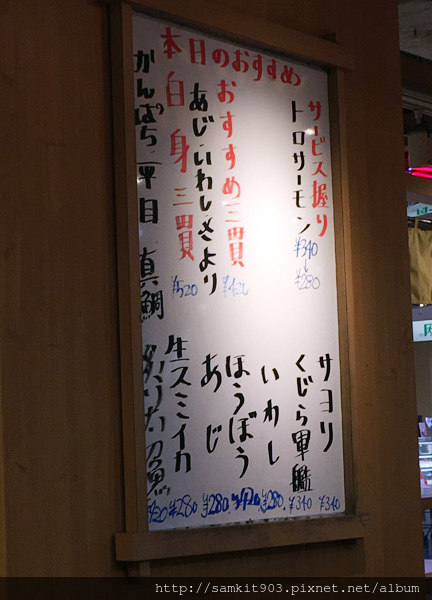 本日のおすすめ
サービス握り
トロサーモン
¥340
¥280
おすすめ三貫
¥420
あじ・いわし・さより
白身三貫
¥520
かんぱち・平目・真鯛
サヨリ ¥340
くじら軍艦 ¥340
いわし ¥280
ほうぼう ¥420
あじ ¥280
生スミイカ ¥280
炙り太刀魚
http://samkit903.pixnet.net/album